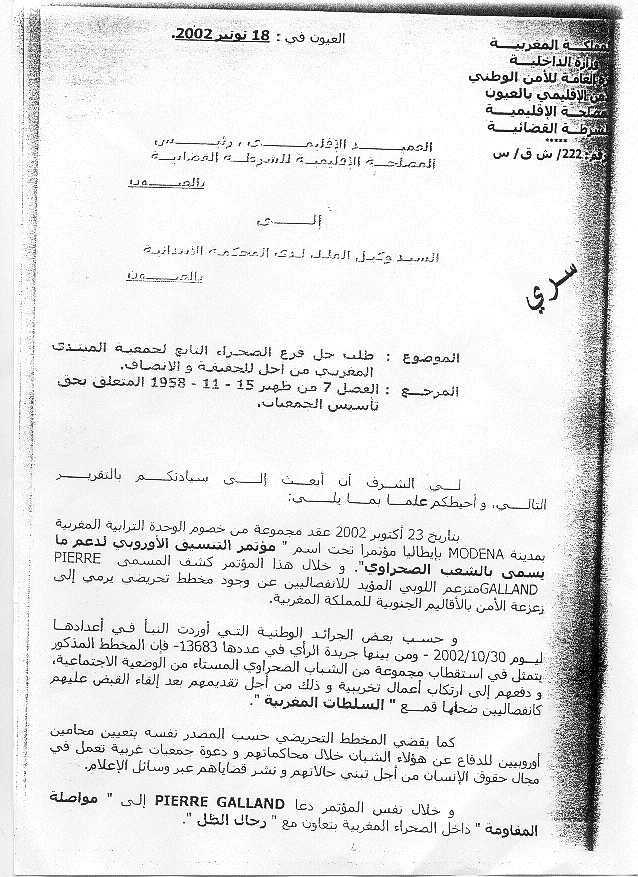 المملكة المغربية
وزارة الداخلية
العامة للأمن الوطني
الأمن الإقليمي بالعيون
المصلحة الإقليمية
للشرطة القضائية
*****
رقم: 222/ ش ق/ س
العيون في : 18 نونبر 2002.
العميد الإقليمي، رئيس
المصلحة الإقليمية للشرطة القضائية
بالعيون
إلى
السيد وكيل الملك لدى المحكمة الابتدائية
بالعيون
سري
الموضوع : طلب حل فرع الصحراء التابع لجمعية المنتدى
المغربي من اجل للحقيقة و الانصاف.
المرجع : الفصل 7 من ظهير 15 - 11 - 1958 المتعلق بحق
تأسيس الجمعيات.
لي الشرف أن أبعث إلى سيادتكم بالتقرير
التالي، و أحيطكم علما بما يلي:
بتاريخ 23 أكتوبر 2002 عقد مجموعة من خصوم الوحدة الترابية المغربية
بمدينة MODENA بإيطاليا مؤتمرا تحت اسم " مؤتمر التنسيق الأوروبي لدعم ما
يسمى بالشعب الصحراوي". و خلال هذا المؤتمر كشف المسمى PIERRE
GALLAND متزعم اللوبي المؤيد للانفصاليين عن وجود مخطط تحريضي يرمي إلى
زعزعة الأمن بالأقاليم الجنوبية للمملكة المغربية.
و حسب بعض الجرائد الوطنية التي أوردت النبأ في أعدادها
ليوم 2002/10/30 - ومن بينها جريدة الرأي في عددها 13683- فإن المخطط المذكور
يتمثل في استقطاب مجموعة من الشباب الصحراوي المستاء من الوضعية الاجتماعية،
و دفعهم إلى ارتكاب أعمال تخريبية و ذلك من أجل تقديمهم بعد إلقاء القبض عليهم
كانفصاليين ضحايا قمع " السلطات المغربية ".
كما يقضي المخطط التحريضي حسب المصدر نفسه بتعيين محامين
أوروبيين للدفاع عن هؤلاء الشبان خلال محاكماتهم و دعوة جمعيات غربية تعمل في
مجال حقوق الإنسان من أجل تبني حالاتهم و نشر قضاياهم عبر وسائل الإعلام.
و خلال نفس المؤتمر دعا PIERRE GALLAND إلى " مواصلة
المقاومة " داخل الصحراء المغربية بتعاون مع " رجال الظل ".